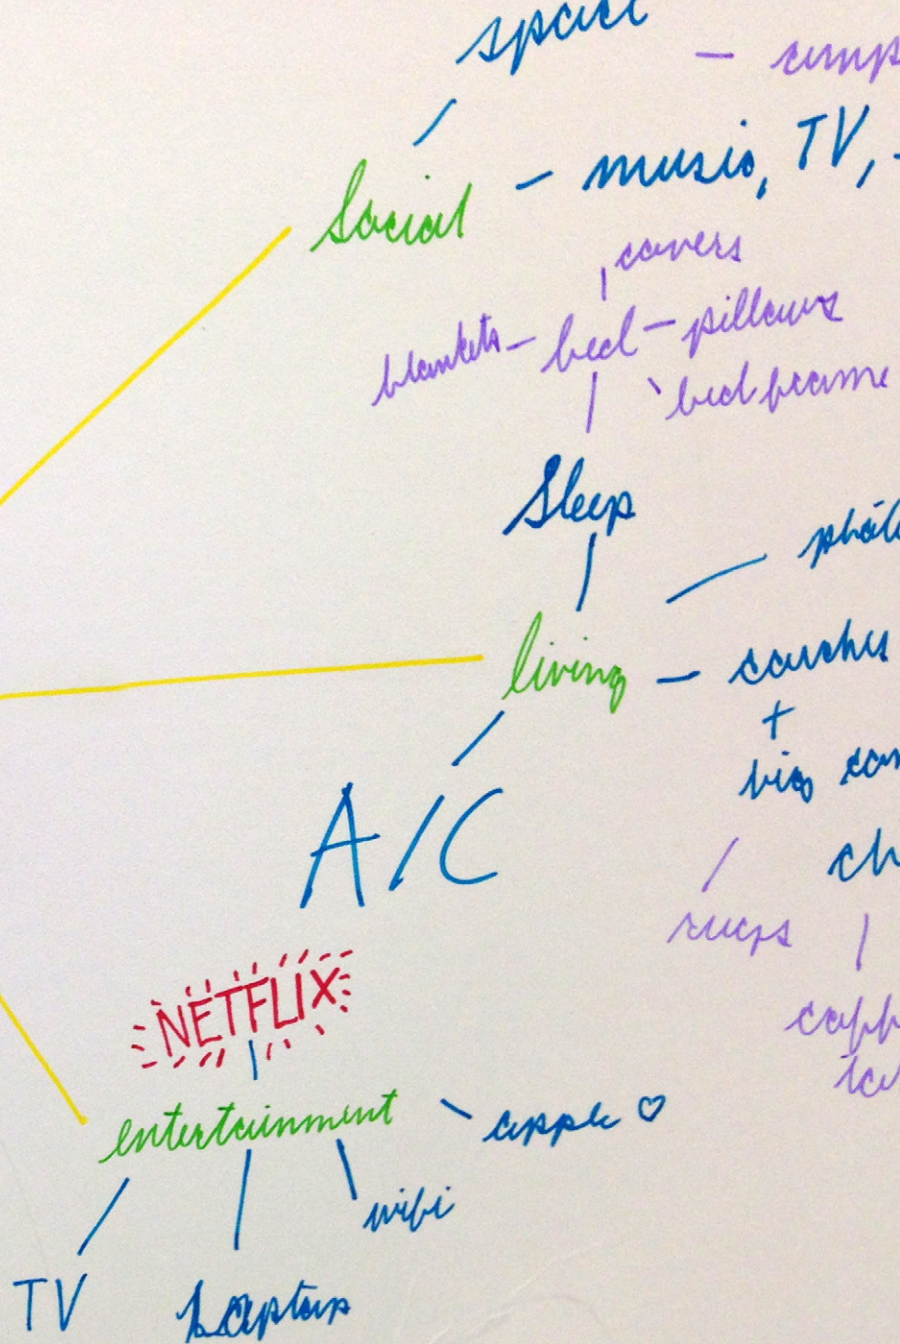 space
Social - music, TV,
covers
blankets - bed - pillows
bedframe
Sleep
living - couches
+
big
A/C
rugs
NETFLIX
entertainment
apple ♡
wifi
TV
Laptop